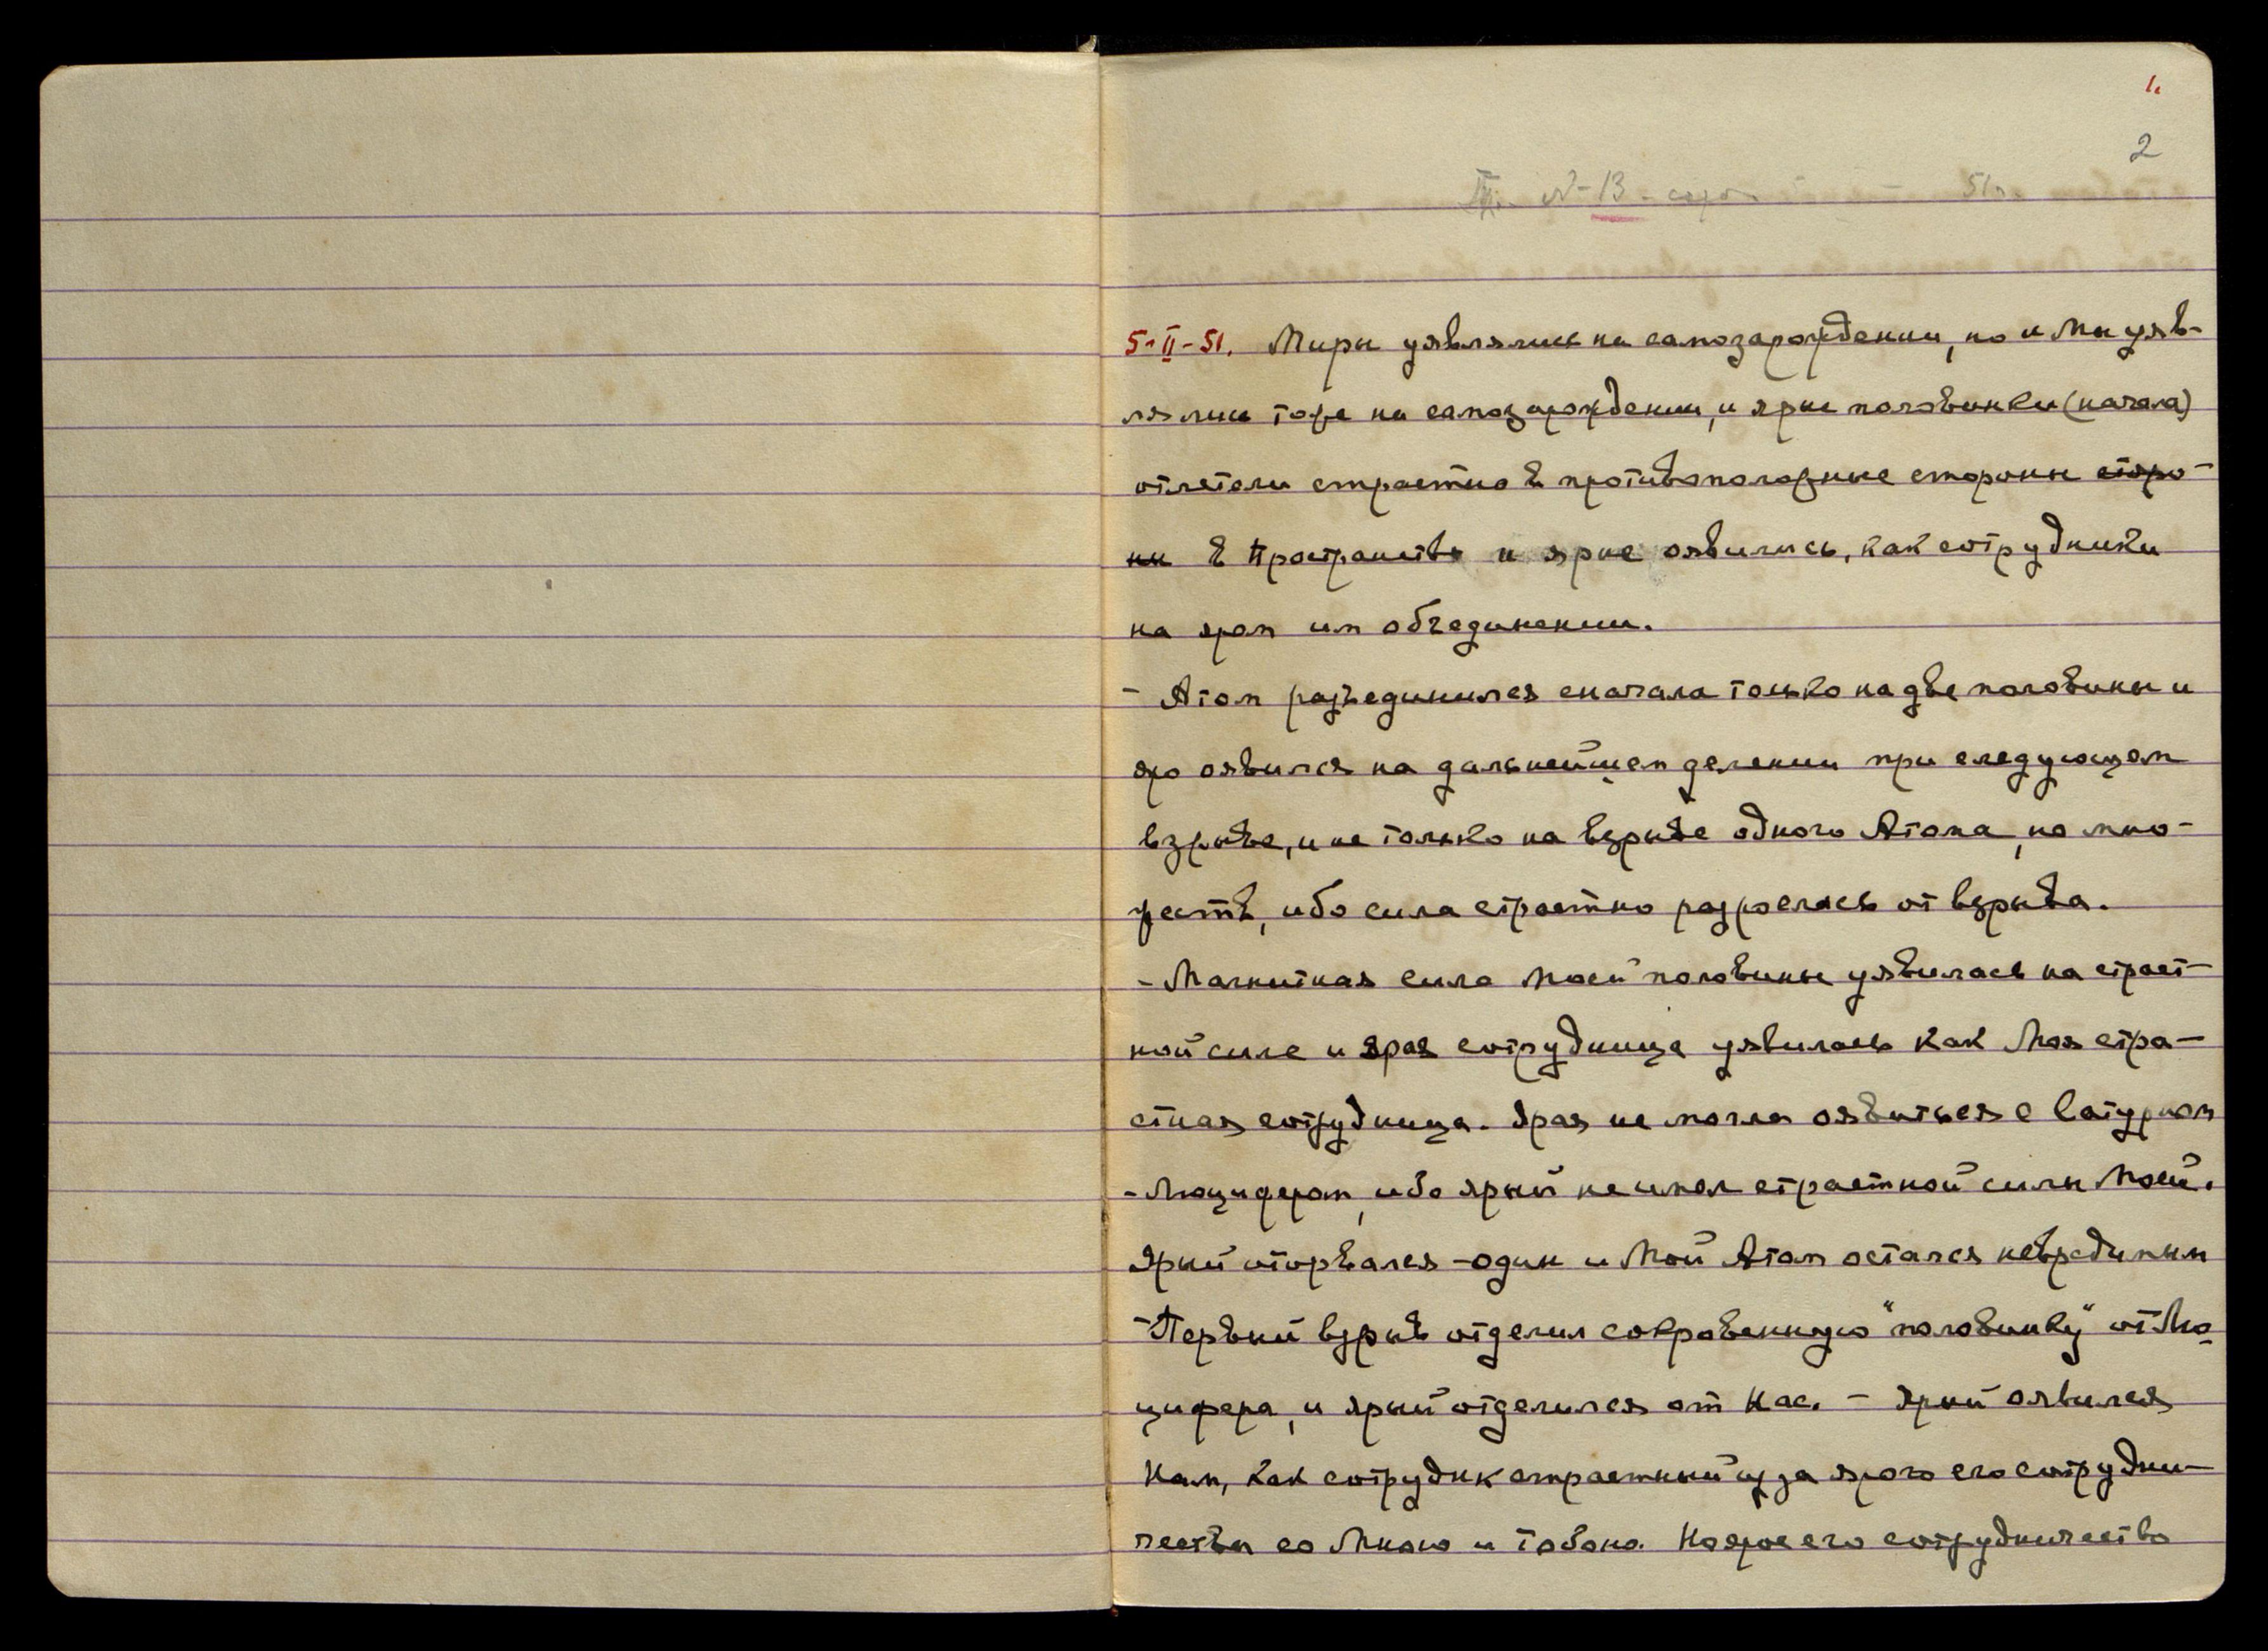 1.
2
N-13 51г.
5-II-51. Миры уявлялись на самозарождении, но и Мы уяв-
лялись тоже на самозарождении, и ярые половинки (начала)
отлетели страстно в противоположные стороны сторо-
ны в Пространство и ярые оявились, как сотрудники
на яром им объединении.
- Атом разъединился сначала только на две половины и
яро оявился на дальнейшем делении при следующем
взрыве, и не только на взрыве одного Атома, но мно-
жеств, ибо сила страстно разрослась от взрыва.
- Магнитная сила Моей половины уявилась на страст-
ной силе и ярая сотрудница уявилась как Моя стра-
стная сотрудница. Ярая не могла оявиться с Сатурном
- Люцифером, ибо ярый не имел страстной силы Моей.
Ярый оторвался - один и Мой Атом остался невредимым
- Первый взрыв отделил сокровенную "половинку" от Лю-
цифера, и ярый отделился от Нас. - Ярый оявился
Нам, как сотрудник страстный из за ярого его сотрудни-
чества со Мною и Тобою. Но ярое его сотрудничество